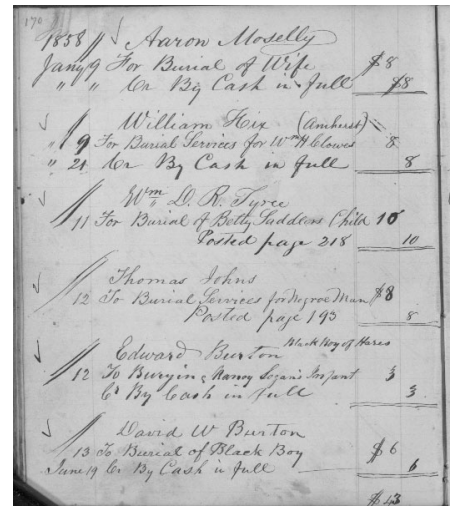 170
1858 // Aaron Moselly
Jany 9 For Burial of Wife $8
" " Cr By Cash in full $8
William Hix (Amherst)
" 9 For Burial Services for Wm H Clowes 8
" 21 Cr By Cash in full 8
Wm D. R. Tyree
11 For Burial of Betty Saddlers Child 10
Posted page 218 10
Thomas Johns
12 To Burial Services for Negroe Man $8
Posted page 193 8
Edward Burton Black Boy of Hares
12 To Burying & Nancy Logan's Infant 3
Cr By Cash in full 3
David W Burton
13 To Burial of Black Boy $6
June 19 Cr By Cash in full 6